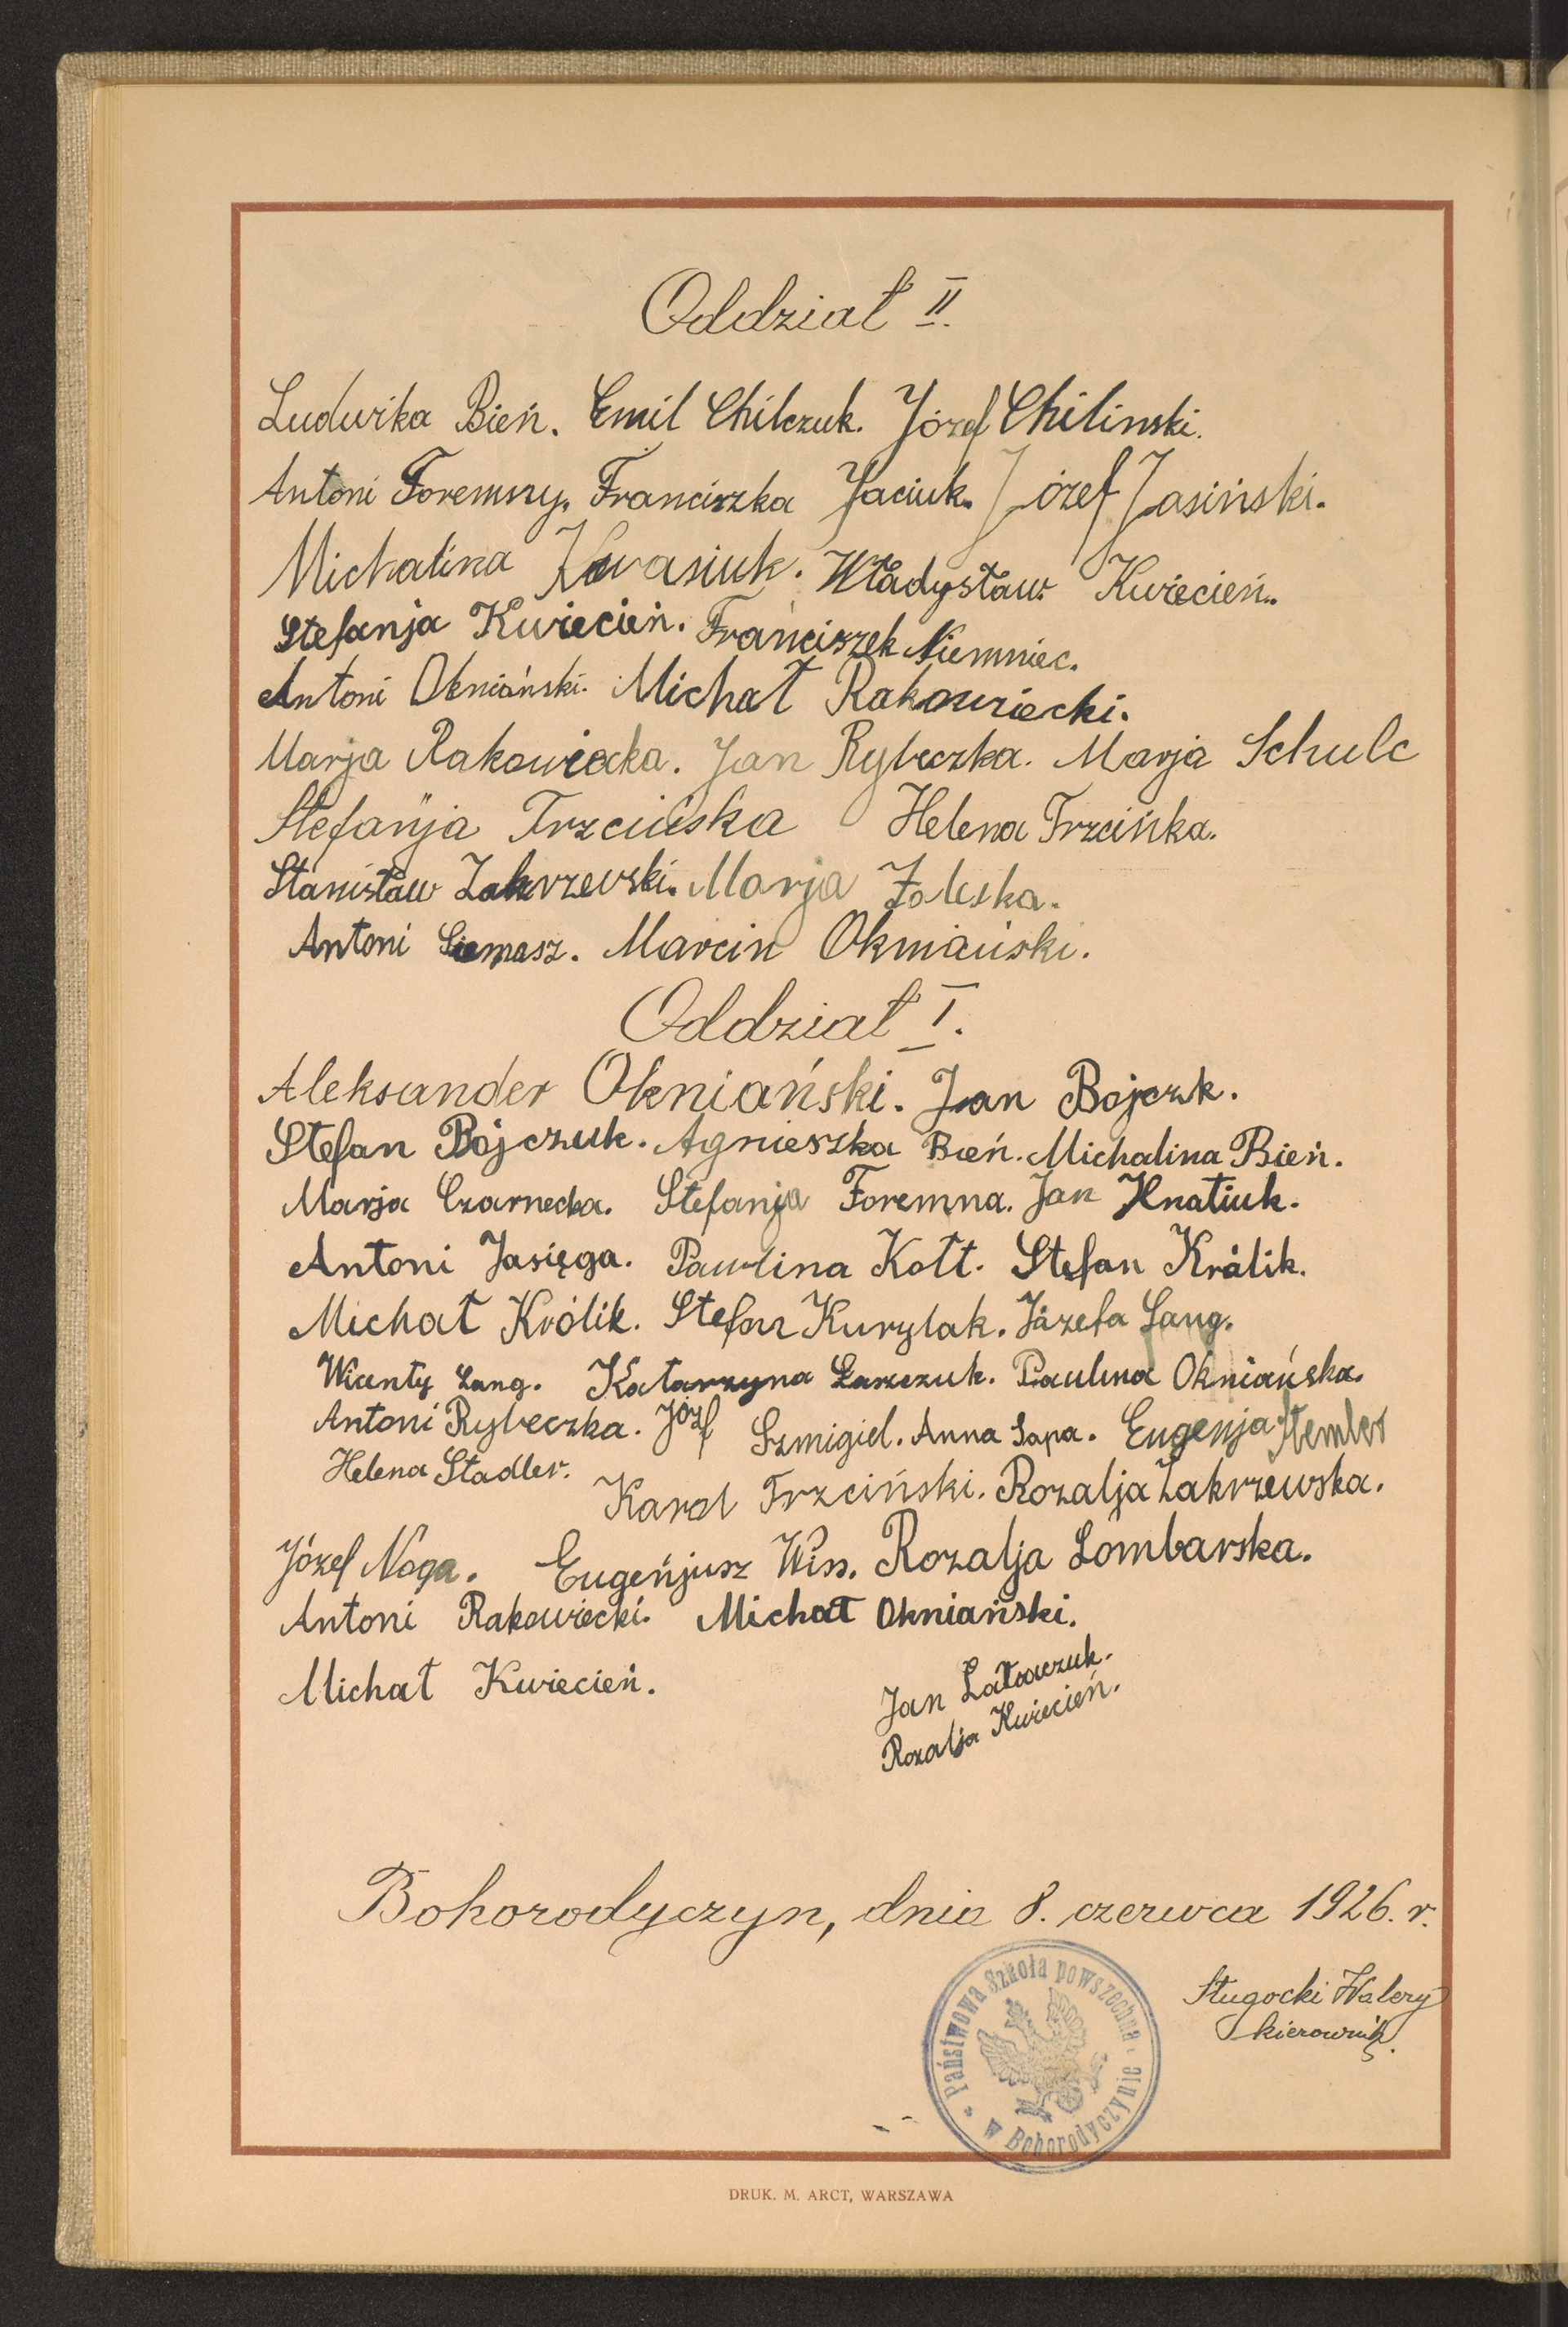 Oddział II.
Ludwika Bień. Emil Chilczuk. Józef Chilinski.
Antoni Foremny. Franciszka Jaciuk. Józef Jasiński.
Michalina Kwasiuk. Władysław Kwiecień.
Stefanja Kwiecień. Franciszek Niemniec.
Antoni Okniański. Michał Rakowiecki.
Marja Rakowiecka. Jan Rybeczka. Marja Schulc
Stefanja Trzcińska Helena Trzcińka.
Stanisław Zakrzewski. Marja Zaleska.
Antoni Siemasz. Marcin Okniański.
Oddział I.
Aleksander Okniański. Jan Bojczuk.
Stefan Bójczuk. Agnieszka Bień. Michalina Bień.
Marja Czarnecka. Stefanja Foremna. Jan Hnatiuk.
Antoni Jasięga. Pawlina Kott. Stefan Królik.
Michał Królik. Stefan Kurylak. Józefa Lang.
Wicenty Lang. Katarzyna Laszczuk. Paulina Okniańska.
Antoni Rybeczka. Józf Szmigiel. Anna Sapa. Eugenja Stembler
Helena Stadler. Karol Trzciński. Rozalja Zakrzewska.
Józef Noga. Eugeńjusz Wiss. Rozalja Lombarska.
Antoni Rakowiecki. Michał Okniański.
Michał Kwiecień. Jan Latawczuk.
Rozalja Kwiecień.
Bohorodyczyn, dnia 8. czerwca 1926. r.
Sługocki Walery
kierownik.
Państwowa Szkoła powszechna
w Bohorodyczynie
DRUK. M. ARCT, WARSZAWA